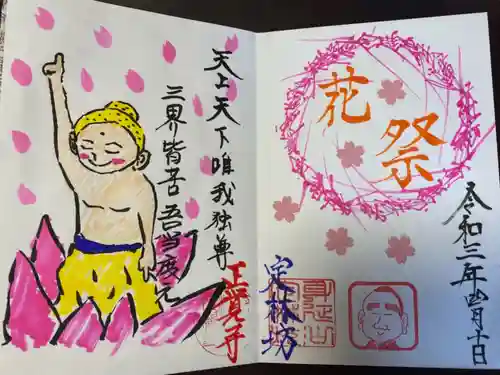 花祭
令和三年四月十日
天上天下唯我独尊
三界皆苦吾当度之
正覚寺
定林坊